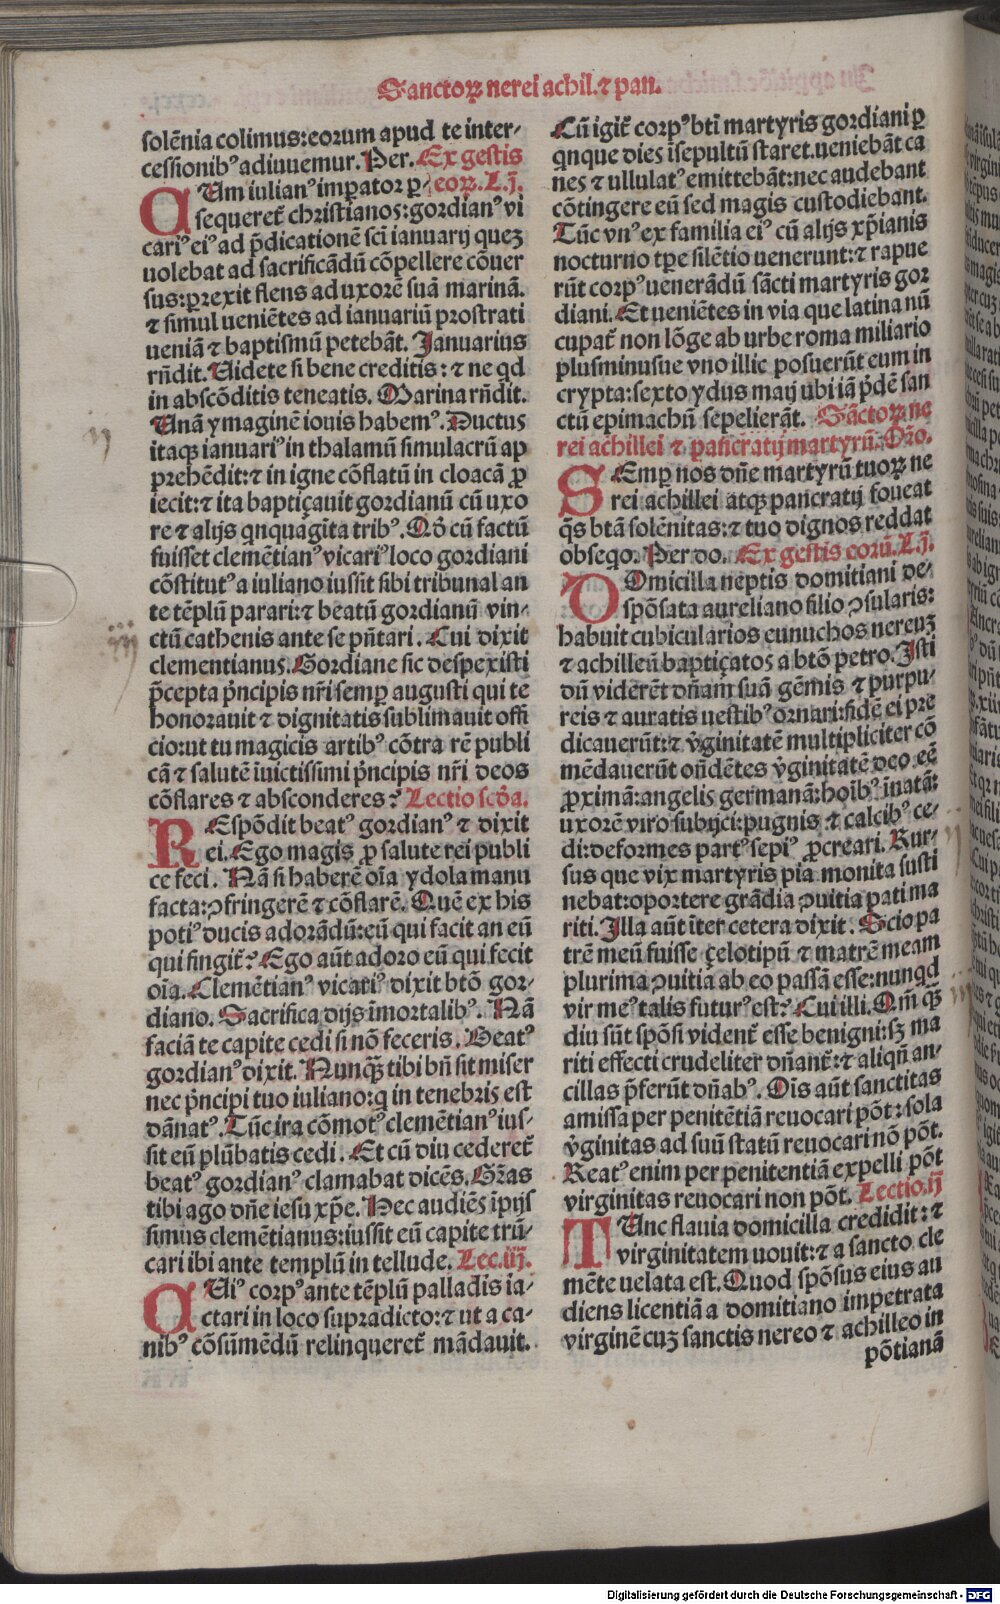 Sanctoꝝ nerei achil. ⁊ pan.
solēnia colimus: eorum apud te inter⸗
cessionibꝰ adiuuemur. Per. Ex gestis
CUm iulianꝰ imperator ꝑ⸗ eoꝝ. L. j.
sequeret᷑ christianos: gordianꝰ vi
cariꝰ eiꝰ ad p̄dicationē scī ianuarij quez
uolebat ad sacrificādū cōpellere cōuer
sus: ꝑrexit flens ad uxorē suā marinā.
⁊ simul ueniētes ad ianuariū prostrati
ueniā ⁊ baptismū petebāt. Januarius
rn̄dit. Uidete si bene creditis: ⁊ ne qd
in abscōditis teneatis. Marina rn̄dit.
Unā ymaginē iouis habemꝰ. Ductus
itaqꝫ ianuariꝰ in thalamū simulacrū ap
prehēdit: ⁊ in igne cōflatū in cloacā ꝓ
iecit: ⁊ ita baptiçauit gordianū cū uxo
re ⁊ alijs qnquagīta tribꝰ. Qd̓ cū factū
fuisset clemētianꝰ vicariꝰ loco gordiani
cōstitutꝰ a iuliano iussit sibi tribunal an
te tēplū parari: ⁊ beatū gordianū vin⸗
ctū cathenis ante se pn̄tari. Cui dixit
clementianus. Gordiane sic despexisti
p̄cepta p̄ncipis nr̄i semꝑ augusti qui te
honorauit ⁊ dignitatis sublimauit offi
cio: ut tu magicis artibꝰ cōtra rē publi
cā ⁊ salutē inuictissimi p̄ncipis nr̄i deos
cōflares ⁊ absconderes? Lectio scd̓a.
REspōdit beatꝰ gordianꝰ ⁊ dixit
ei. Ego magis ꝓ salute rei publi
ce feci. Nā si haberē oīa ydola manu
facta: ꝯfringerē ⁊ cōflarē. Quē ex his
potiꝰ ducis adorādū: eū qui facit an eū
qui fingit᷑? Ego aūt adoro eū qui fecit
oīa. Clemētianꝰ vicariꝰ dixit btō gor⸗
diano. Sacrifica dijs īmortalibꝰ. Nā
faciā te capite cedi si nō feceris. Beatꝰ
gordianꝰ dixit. Nunqꝫ tibi bn̄ sit miser
nec p̄ncipi tuo iuliano: q in tenebris est
dānatꝰ. Tūc ira cōmotꝰ clemētianꝰ ius⸗
sit eū plūbatis cedi. Et cū diu cederet᷑
beatꝰ gordianꝰ clamabat dicēs. Gr̄as
tibi ago dn̄e iesu xp̄e. Hec audiēs īpijs
simus clemētianus: iussit eū capite trū⸗
cari ibi ante templū in tellude. Lec. iij.
CUiꝰ corpꝰ ante tēplū palladis ia⸗
ctari in loco supradicto: ⁊ ut a ca⸗
nibꝰ cōsūmēdū relinqueret᷑ mādauit.
Cū igit᷑ corpꝰ btī martyris gordiani ꝑ
qnque dies īsepultū staret. ueniebāt ca
nes ⁊ ullulatꝰ emittebāt: nec audebant
cōtingere eū sed magis custodiebant.
Tūc vnꝰ ex familia eiꝰ cū alijs xp̄ianis
nocturno tꝑe silētio uenerunt: ⁊ rapue
rūt corpꝰ uenerādū sācti martyris gor
diani. Et ueniētes in via que latina nū
cupat᷑ non lōge ab urbe roma miliario
plusminusue vno illic posuerūt eum in
crypta: sexto ydus maij ubi iā pdē san
ctū epimachū sepelierāt. Sāctoꝝ ne
rei achillei ⁊ pancratij martyrū. Oro.
SEmꝑ nos dn̄e martyrū tuoꝝ ne
rei achillei atqꝫ pancratij foueat
qs̄ btā solēnitas: ⁊ tuo dignos reddat
obseqo. Per do. Ex gestis eorū. L. j.
DOmicilla neptis domitiani de⸗
spōsata aureliano filio ꝯsularis:
habuit cubicularios eunuchos nereuz
⁊ achilleū baptiçatos a btō petro. Isti
dū viderēt dn̄am suā gēmis ⁊ purpu⸗
reis ⁊ auratis uestibꝰ ornari: fidē ei pre
dicauerūt: ⁊ v̓ginitatē multipliciter cō
mēdauerūt on̄dētes v̓ginitatē deo eē
ꝓximā: angelis germanā: hoībꝰ īnatā:
uxorē viro subijci: pugnis ⁊ calcibꝰ ce⸗
di: deformes partꝰ sepiꝰ ꝓcreari. Rur⸗
sus que vix martyris pia monita susti
nebat: oportere grādia ꝯuitia pati ma
riti. Illa aūt īter cetera dixit. Scio pa
trē meū fuisse çelotipū ⁊ matrē meam
plurima ꝯuitia ab eo passā esse: nunqd
vir meꝰ talis futurꝰ est? Cui illi. Qm̄ qꝫ
diu sūt spōsi vident᷑ esse benigni: sꝫ ma
riti effecti crudeliter dn̄ant᷑: ⁊ aliqn̄ an⸗
cillas p̄ferūt dn̄abꝰ. Oīs aūt sanctitas
amissa per penitētiā reuocari pōt: sola
v̓ginitas ad suū statū reuocari nō pōt.
Reatꝰ enim per penitentiā expelli pōt
virginitas reuocari non pōt. Lectio. ij
TUnc flauia domicilla credidit: ⁊
virginitatem uouit: ⁊ a sancto cle
mēte uelata est. Quod spōsus eius au
diens licentiā a domitiano impetrata
virginē cuz sanctis nereo ⁊ achilleo in
pōtianā
Digitalisierung gefördert durch die Deutsche Forschungsgemeinschaft - DFG